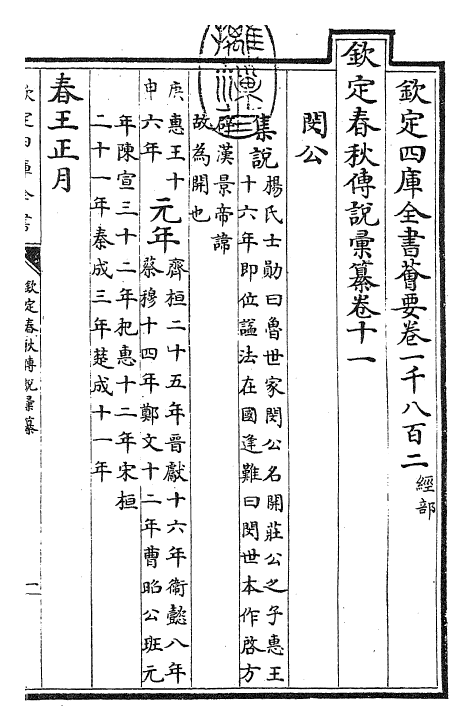 欽定四庫全書薈要卷一千八百二 經部
欽定春秋傳說彙纂卷十一
閔公
集說 楊氏士勛曰魯世家閔公名開莊公之子惠王
十六年即位諡法在國逢難曰閔世本作啓方
辟漢景帝諱
故為開也
庚申 惠王十六年 元年 齊桓二十五年晉獻十六年衞懿八年
蔡穆十四年鄭文十二年曹昭公班元
年陳宣三十二年杞惠十二年宋桓
二十一年秦成三年楚成十一年
春王正月
欽定四庫全書
欽定春秋傳說彙纂
一